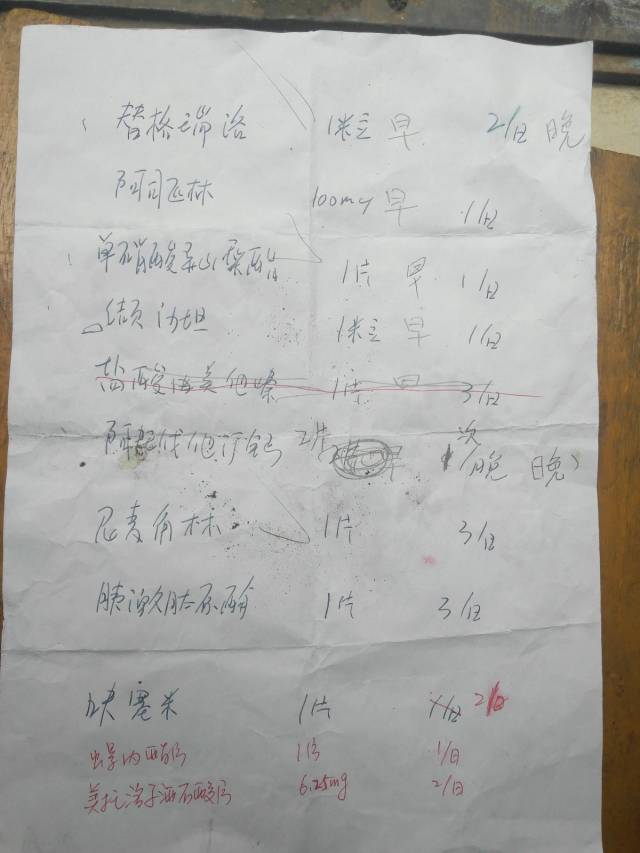 替格瑞洛 1粒 早 2/日 晚
阿司匹林 100mg 早 1/日
单硝酸异山梨酯 1片 早 1/日
缬沙坦 1粒 早 1/日
盐酸曲美他嗪 1片 早 3/日
阿托伐他汀钙 2片 早 1次/晚 晚
尼麦角林 1片 3/日
胰激肽原酶 1片 3/日
呋塞米 1片 1/日 2/日
螺内酯 1片 1/日
美托洛尔酒石酸 6.25mg 2/日